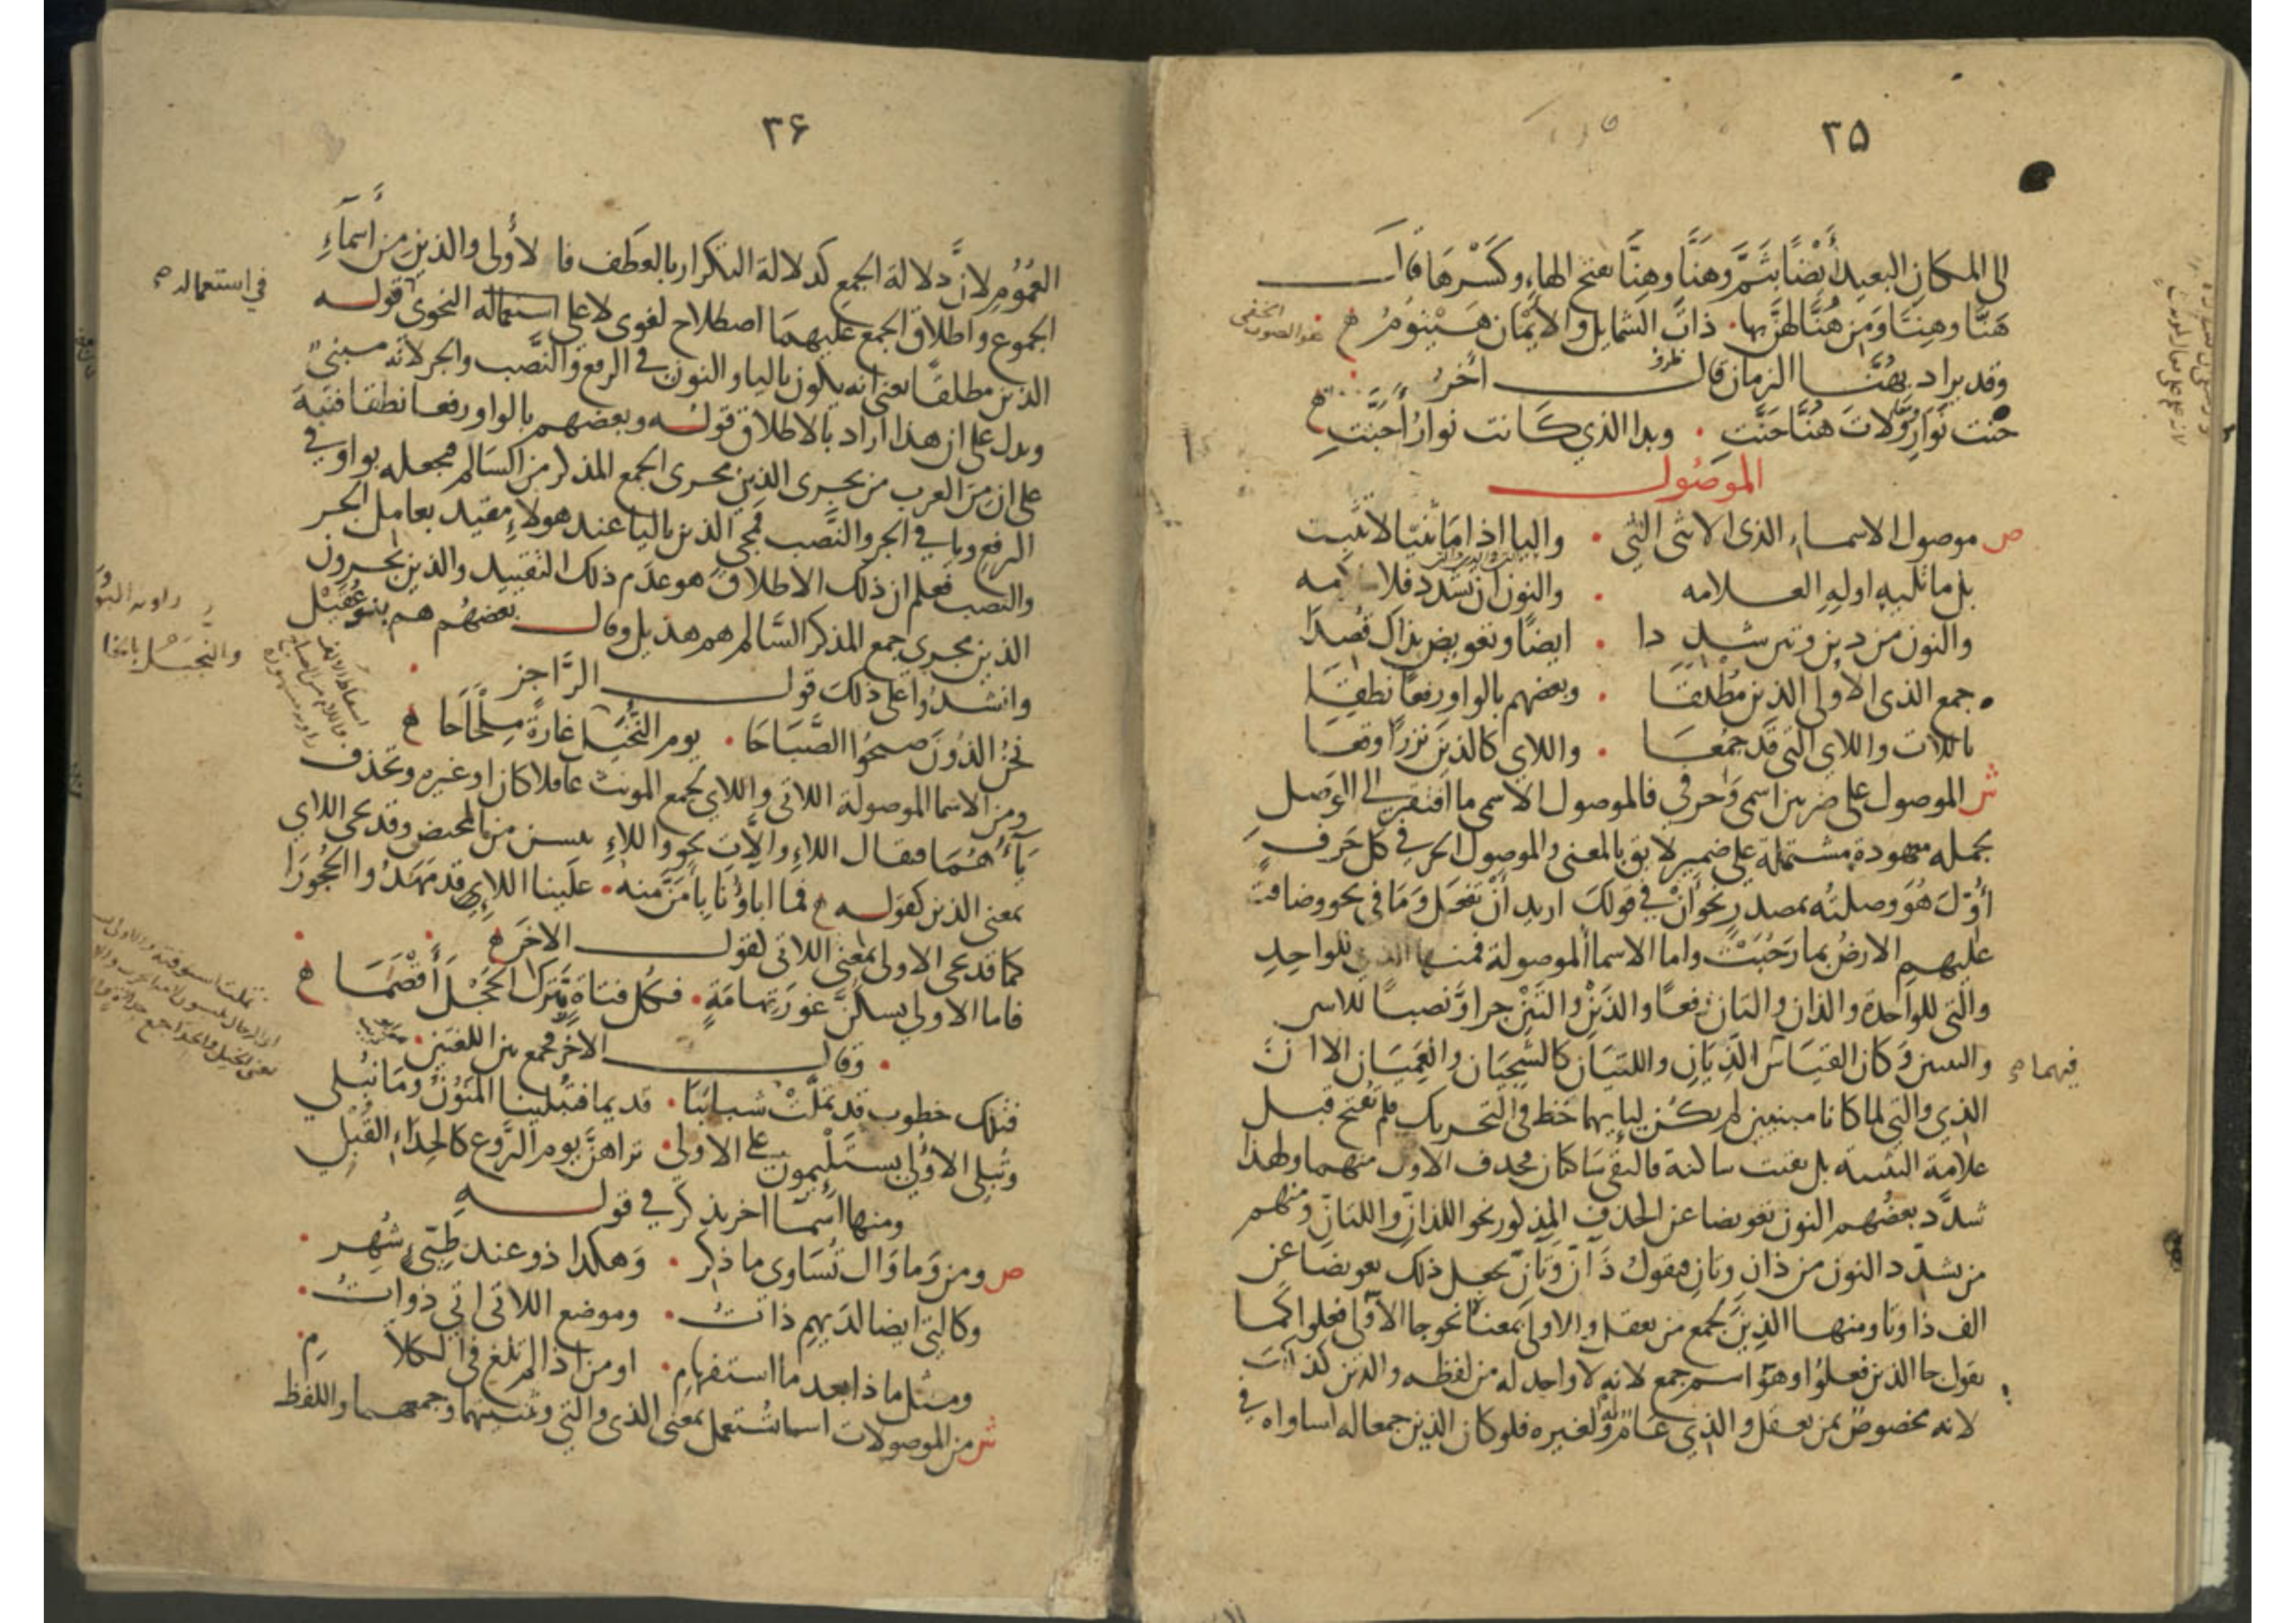 ٣٥
الى المكان البعيد أيضًا بثَمَّ وهَنَّا وهِنَّا بفتح الهاء وكَسْرها قال
هَنَّا وهِنَّا ومِن هُنَّا لهنَّ بها ٠ ذاتَ الشمايل والأَيْمان هَيْنُومُ
وقد يراد بهُنَّا الزمان قال اخرُ
حنت نَوارِ ولاتَ هَنَّا حَنَّتِ ٠ وبدا الذي كَانت نوارُ أَجَنَّتِ
الموصُول
ص موصول الاسماء الذى الانثى التي ٠ واليا اذا مَا ثنيّا لا تثبت
بل ما تليه اولِهِ العلامه ٠ والنون ان تشدد فلا ملامه
والنون من ذين وتين شددا ٠ ايضًا وتعويض بذاك قُصدَا
جمع الذى الأولى الذين مُطْلقَا ٠ وبعضهم بالواو رفعًا نطقَا
باللات واللاي التي قَد جُمعَا ٠ واللاي كالذينَ نزرًا وقعَا
ش الموصول على ضربين اسمى وَحرفي فالموصول الاسمى ما افتقر الى الوَصل
بجمله معهودة مشتملة على ضمير لايق بالمعنى والموصول الحرفي كل حَرف
أُوّلَ هُوَ وصلتُه بمصدرٍ نحو أنْ في قولكَ اريد أنْ تفعَل وَمَا في نحو وضاقت
عليهم الارضُ بما رَحُبَتْ واما الاسما الموصولة فمنها الذي للواحِدِ
والتي للواحدة والذان والتان رفعًا والذَيْن والتَيْن جرا ونصبًا للاسر
والتسين وَكان القيَاس اللَّذِيَانِ واللتيَان كالشَّجِيَان والعَمِيَان الا انَّ
فيهما
الذي والتي لما كانا مبنيين لم يكُن ليايهما حَظ في التحريك فلم تُفتح قبل
علامة التثنية بل بقيت ساكنة فالتقى سَاكنان فحُذف الاول منهما ولهذا
شدَّد بعضُهم النون تعويضا عن الحذف المذكور نحو اللذانّ واللتانِّ ومنهم
من يشدّد النون من ذان وتانِ فيقولُ ذَانّ وَتَانّ بجعل ذلك تعويضا عن
الف ذا وتا ومنها الذِينَ لجمع من يعقل والاولى بمعناه نحو جا الأولى فعلوا كما
يقول جا الذين فعلُوا وهوَ اسم جمع لانه لا واحد له من لفظه والذين كذالكَ
لانه مخصوصٌ بمن يعقل والذِي عَامٌّ وله لغيره فلو كان الذين جمعا له لساواه في
٣۶
العُمُومِ لانَّ دلالة الجمعِ كدلالة التكرار بالعطف فالأولى والذين من أسمَاءِ
الجموع واطلاق الجمع عليهمَا اصطلاح لغوى لا على استعماله النحوى قوله
في استعماله
الذين مطلقًا يعني انه يكون باليا والنون في الرفع والنَّصب والجر لانه مبنىٌّ
ويدل على ان هذا اراد بالاطلاق قولُه وبعضهم بالواو رفعا نطقا فنبَّهَ
على ان مِنَ العرب من يجرى الذين مجرى الجمع المذكر من السَالم فيجعله بواو في
الرفع ويا في الجر والنَّصب فمجي الذين باليا عند هولاءِ مقيد بعامل الجر
والنصب فعلم ان ذلك الاطلاقَ هو عَدَم ذلك التقييد والذين يجرون
الذين مجري جمع المذكر السَّالم هم هذيل وقال بعضهُم هم بنو عُقَيْل
وانشدُوا على ذلكَ قول الرَّاجز
نحنُ الذُونَ صبحُوا الصَّبَاحَا ٠ يوم النُّخَيْل غارةً مِلْحَاحَا
ومن الاسما الموصولة اللاتي واللاي لجمع المونث عاقلا كان او غيره وتحذف
يَاؤُهُمَا فيقال اللاءِ واللَّاتِ نحو واللاءِ يئسن من المحيض وقد يجي اللاي
بمعنى الذين كقوله فما اباؤُنَا بِأَمَنَّ منه ٠ علَينا اللاءِ قد مَهَدُوا الحُجُورَا
كما قد يجي الاولى بمعنى اللاتي كقول الاخَر
فاما الاولى يسكنَّ غَورَ تِهامَةٍ ٠ فكُل فتاةٍ تَترُك الحَجْلَ أَقْصَمَا
وقال الاخر فجمع بين اللغتين
فتلك خطوب قد تملَّتْ شبابَنَا ٠ قديما فتُبْلينا المَنُونُ ومَا نُبْلي
وتُبلى الأُولى يستَلْئِمون على الاولى ٠ تراهنَّ يوم الرَّوعِ كالحِدَاءِ القُبْلِ
ومنها اسمَا اخر يذكر في قوله
ص ومن وَمَا وَال تُسَاوى ما ذكر ٠ وَهكذا ذو عند طيّىٍ شُهِر
وكالتي ايضا لدَيهم ذاتُ ٠ وموضع اللاتى اتي ذواتُ
ومثل ماذا بعد ما استفهامِ ٠ او من اذا لم تلغ في الكلامِ
ش من الموصولات اسما تُستعمل بمعنى الذى والتي وتثنيتهما وجمعهما واللفظ